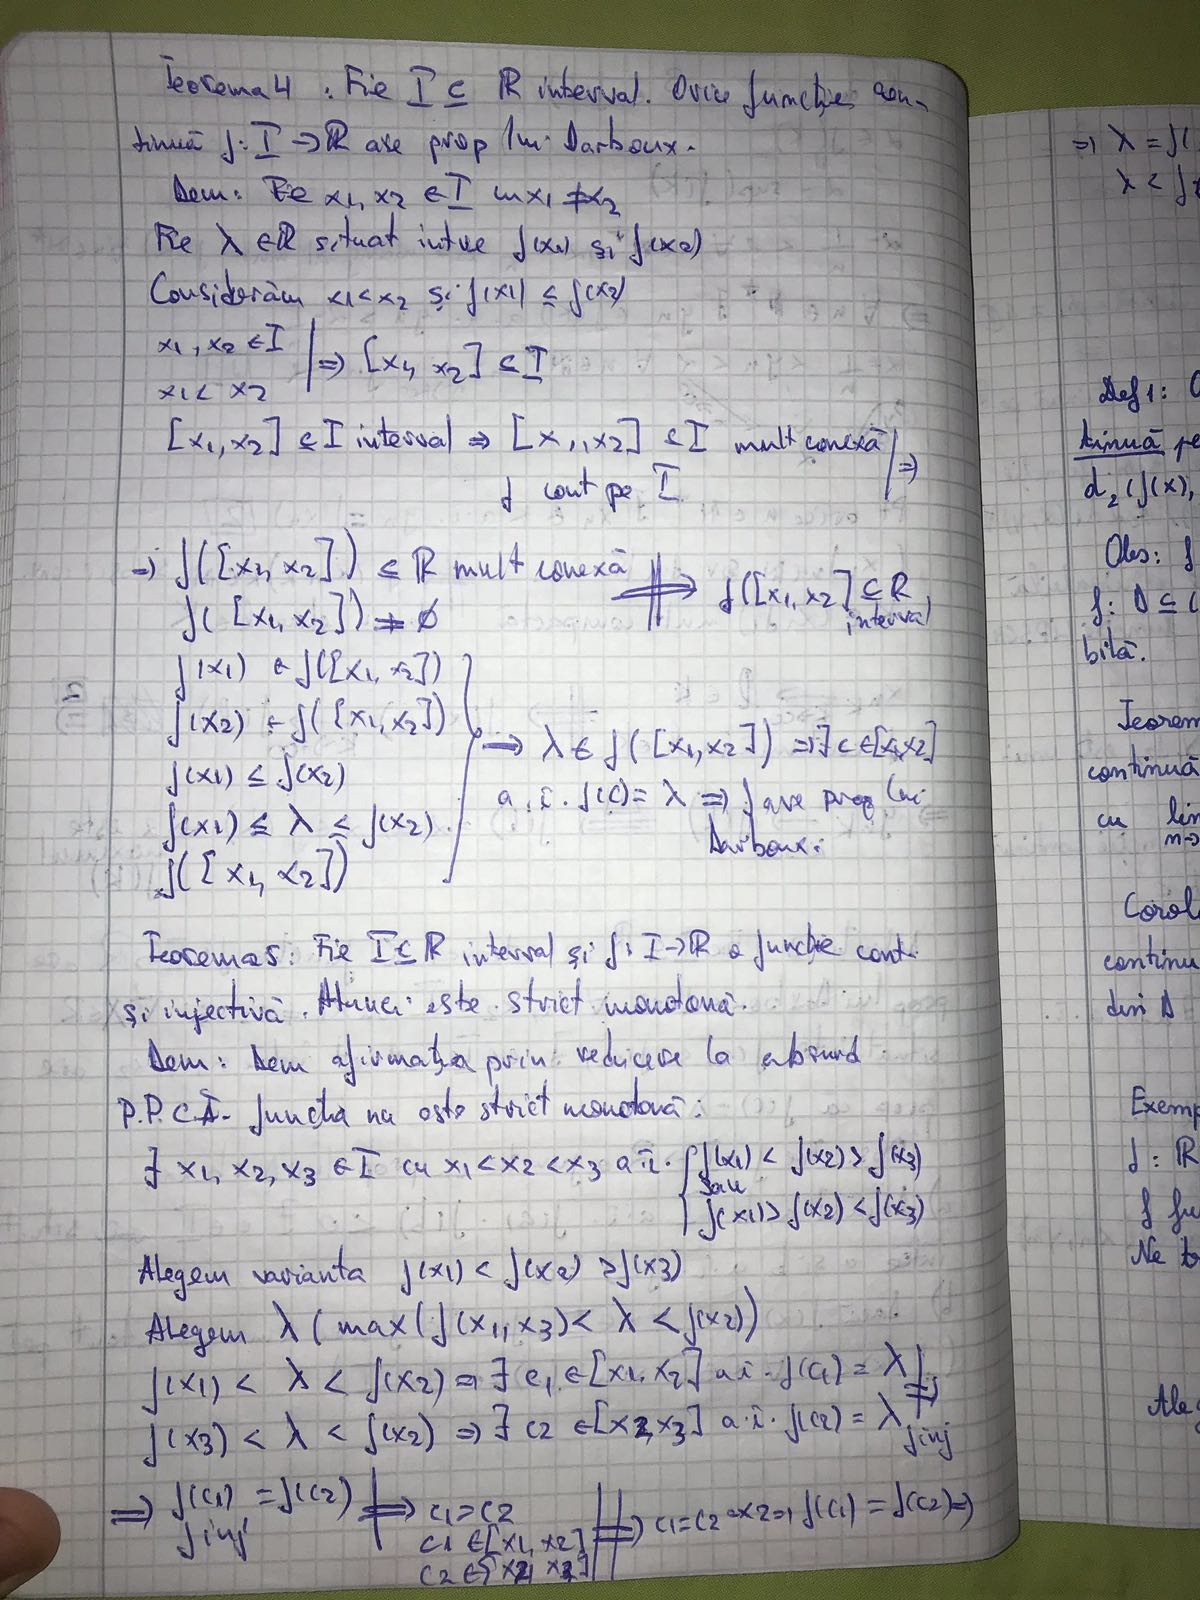 Teorema 4 : Fie I ⊆ ℝ interval. Orice funcție con-
tinuă f: I → ℝ are prop lui Darboux.
Dem: Fie x1, x2 ∈ I cu x1 ≠ x2
Fie λ ∈ ℝ situat între f(x1) și f(x2)
Considerăm x1 < x2 și f(x1) ≤ f(x2)
x1, x2 ∈ I
x1 < x2 | ⇒ [x1, x2] ⊆ I
[x1, x2] ⊆ I interval ⇒ [x1, x2] ⊆ I mult conexă
f cont pe I | ⇒
⇒ f([x1, x2]) ⊆ ℝ mult conexă
f([x1, x2]) ≠ ∅ ⇒ f([x1, x2] ⊆ ℝ
interval
f(x1) ∈ f([x1, x2])
f(x2) ∈ f([x1, x2])
f(x1) ≤ f(x2)
f(x1) ≤ λ ≤ f(x2)
f([x1, x2])
⇒ λ ∈ f([x1, x2]) ⇒ ∃ c ∈ [x1, x2]
a.î. f(c) = λ ⇒ f are prop lui
Darboux.
Teorema 5: Fie I ⊆ ℝ interval și f: I → ℝ o funcție cont.
și injectivă. Atunci este strict monotonă.
Dem: Dem afirmația prin reducere la absurd
P.P.C.Ă. funcția nu este strict monotonă:
∃ x1, x2, x3 ∈ I cu x1 < x2 < x3 a.î. f(x1) < f(x2) > f(x3)
sau
f(x1) > f(x2) < f(x3)
Alegem varianta f(x1) < f(x2) > f(x3)
Alegem λ (max(f(x1, x3) < λ < f(x2))
f(x1) < λ < f(x2) ⇒ ∃ c1 ∈ [x1, x2] a.î. f(c1) = λ | ⇒
f(x3) < λ < f(x2) ⇒ ∃ c2 ∈ [x2, x3] a.î. f(c2) = λ f inj
⇒ f(c1) = f(c2)
f inj | ⇒ c1 = c2
c1 ∈ [x1, x2]
c2 ∈ [x2, x3] ⇒ c1 = c2 = x2 ⇒ f(c1) = f(c2) ⇒
⇒ λ = f(
λ < f
Def 1:
tinuă pe
d2 (f(x),
Obs: f
f: D ⊆ (
bilă.
Teorem
continuă
cu lim
n→
Corol
continu
din D
Exemp
f: ℝ
f fu
Ne
Aleg